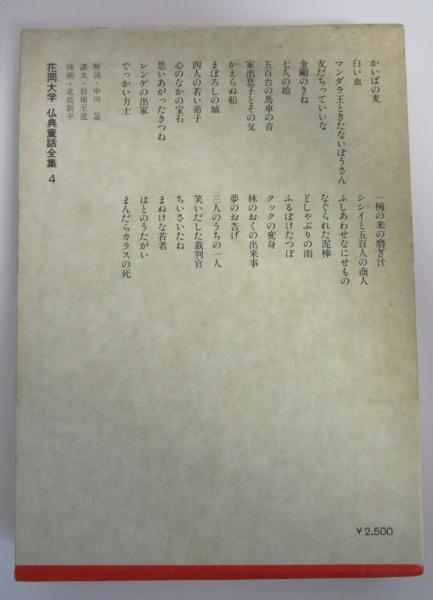 かいばの麦
白い血
マンダラ王ときたないぼうさん
友だちっていいな
金剛のきね
七人の娘
五百台の馬車の音
家出息子とその父
かえらぬ船
まぼろしの城
四人の若い弟子
心のなかの宝石
思いあがったきつね
レンゲの出家
でっかい力士
一椀の米の磨ぎ汁
シシイと五百人の商人
ふしあわせなにせもの
なぐられた泥棒
どしゃぶりの雨
ふるぼけたつぼ
クックの変身
林のおくの出来事
夢のお告げ
三人のうちの一人
笑いだした裁判官
ちいさいたね
まぬけな若者
はとのうたがい
まんだらカラスの死
解説・中川 晟
讃文・岩堀至道
挿画・北島新平
花岡大学 仏典童話全集 4
¥2,500